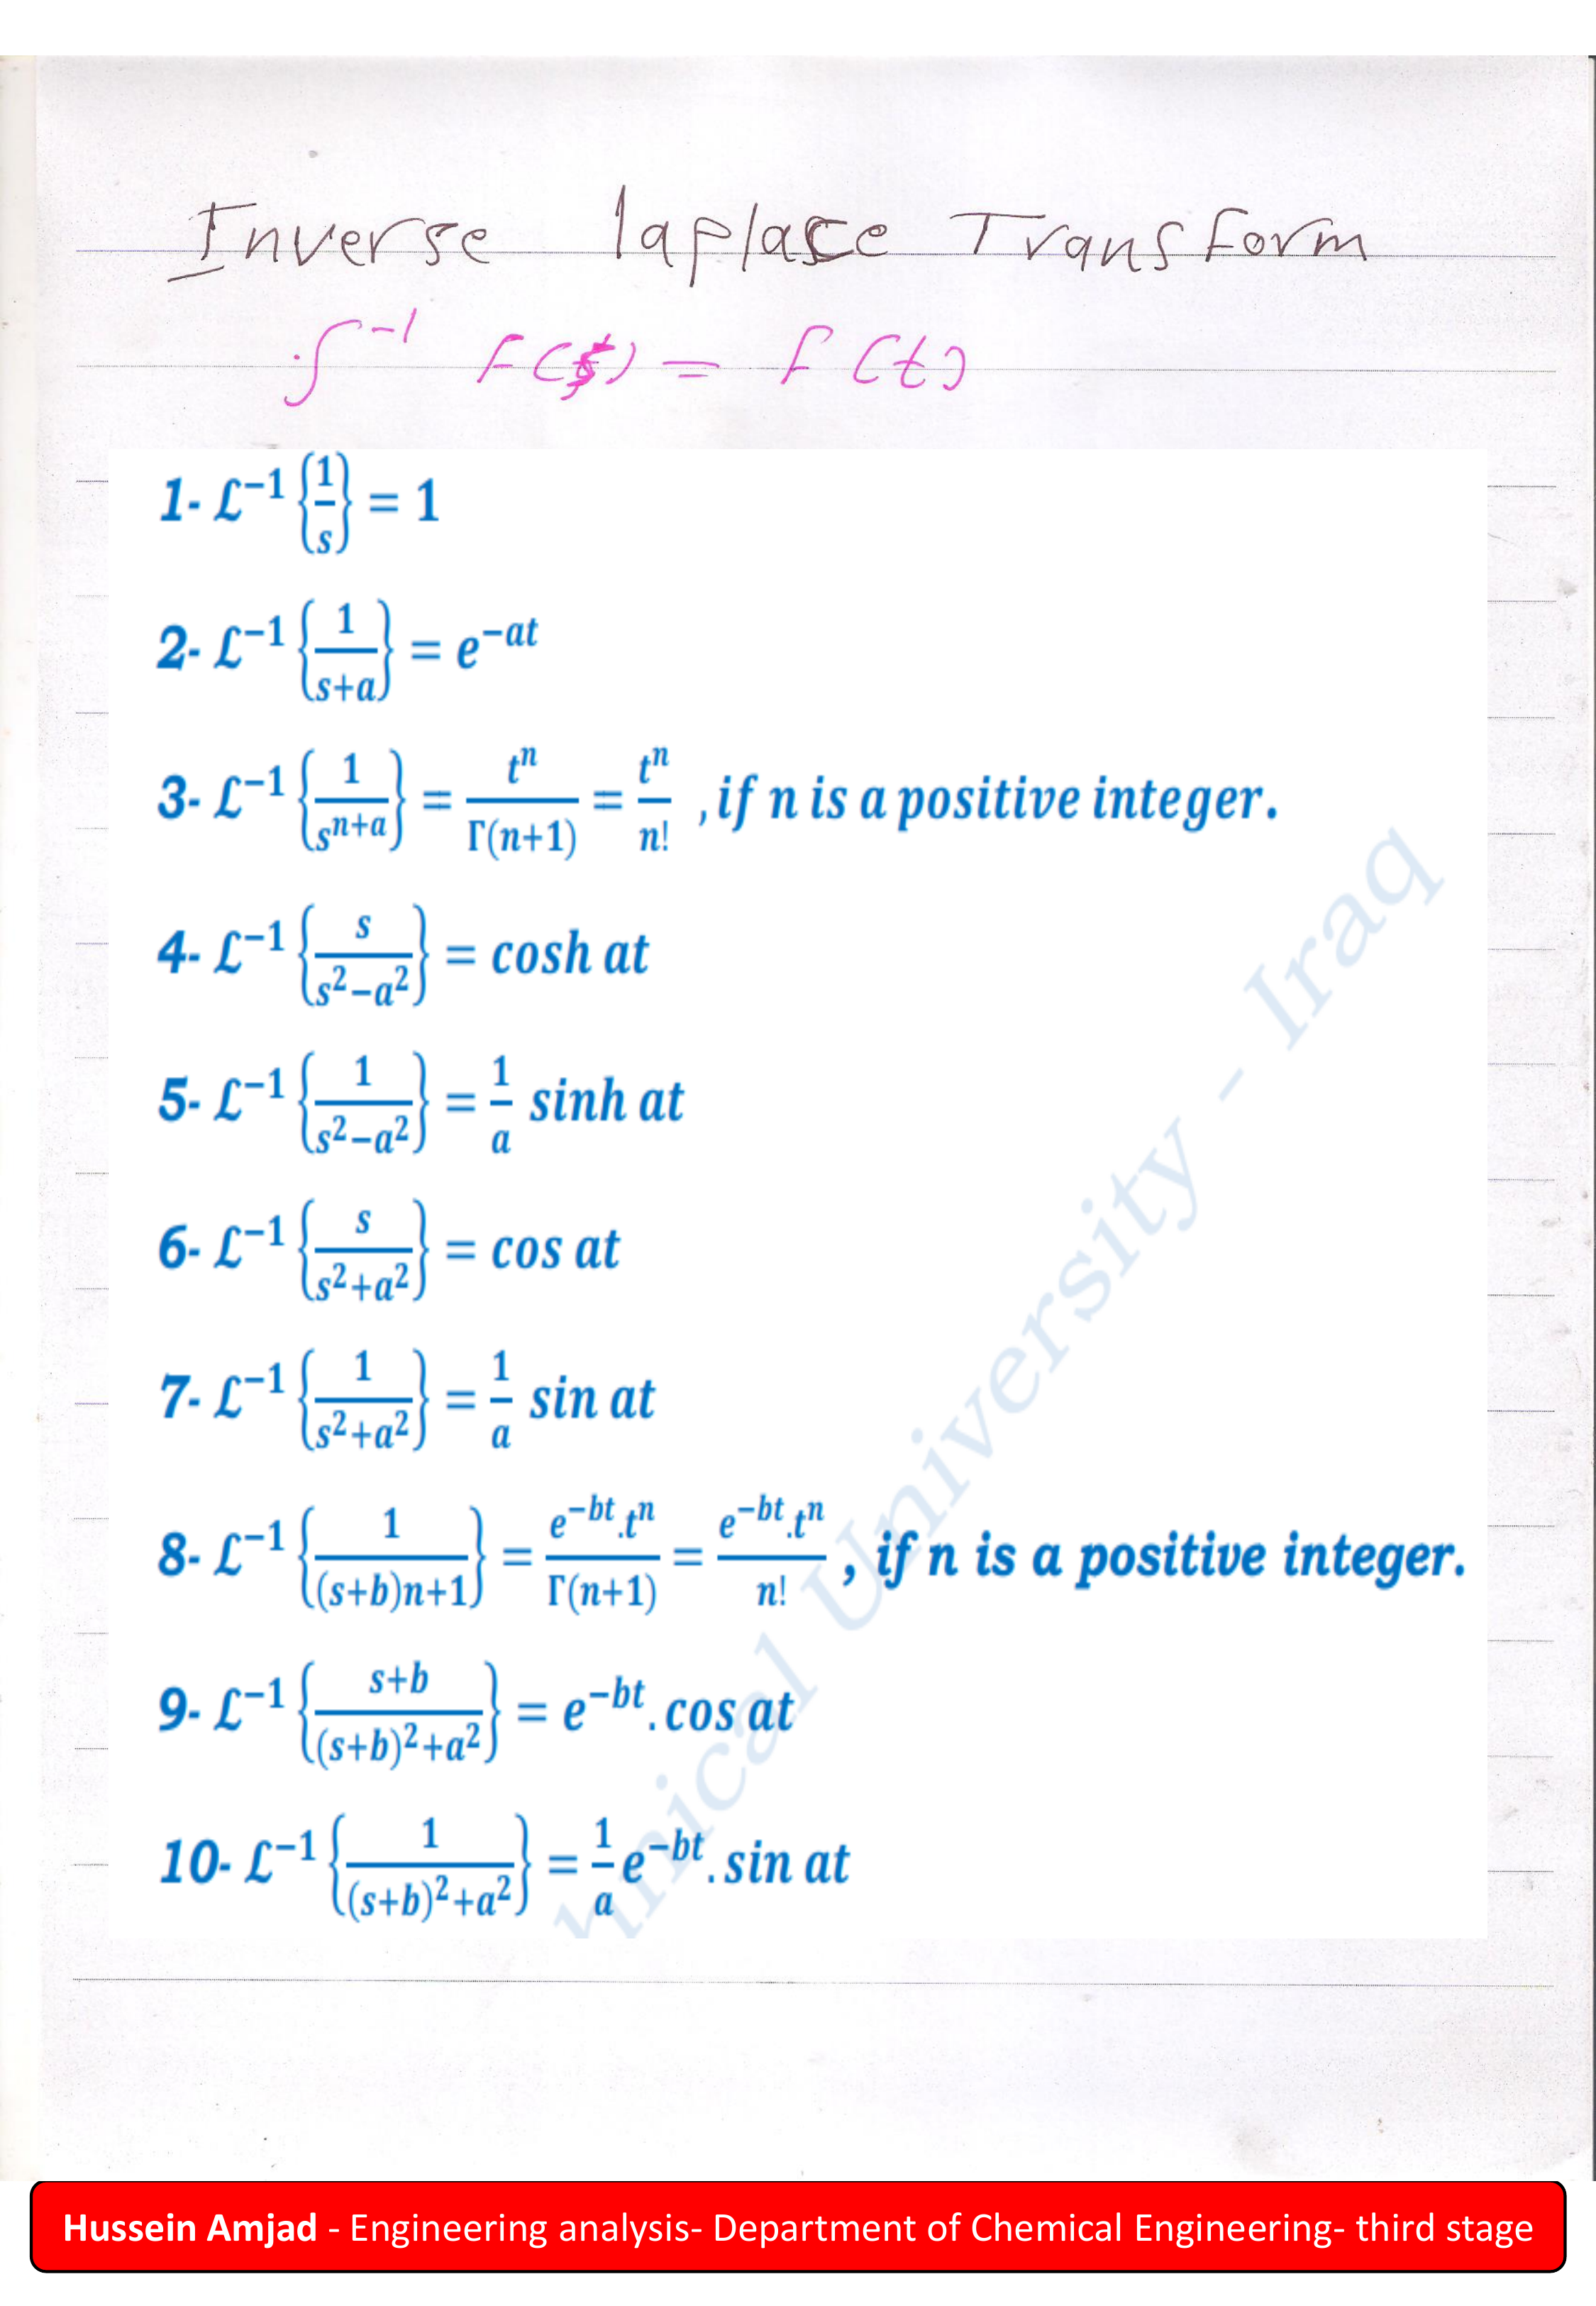 Inverse laplace Transform
∫⁻¹ F(s) = f(t)
1- ℒ⁻¹ {1/s} = 1
2- ℒ⁻¹ {1/(s+a)} = e^(−at)
3- ℒ⁻¹ {1/s^(n+a)} = t^n/Γ(n+1) = t^n/n! , if n is a positive integer.
4- ℒ⁻¹ {s/(s²−a²)} = cosh at
5- ℒ⁻¹ {1/(s²−a²)} = 1/a sinh at
6- ℒ⁻¹ {s/(s²+a²)} = cos at
7- ℒ⁻¹ {1/(s²+a²)} = 1/a sin at
8- ℒ⁻¹ {1/((s+b)n+1)} = e^(−bt).t^n/Γ(n+1) = e^(−bt).t^n/n! , if n is a positive integer.
9- ℒ⁻¹ {(s+b)/((s+b)²+a²)} = e^(−bt). cos at
10- ℒ⁻¹ {1/((s+b)²+a²)} = 1/a e^(−bt). sin at
hnical University - Iraq
Hussein Amjad - Engineering analysis- Department of Chemical Engineering- third stage